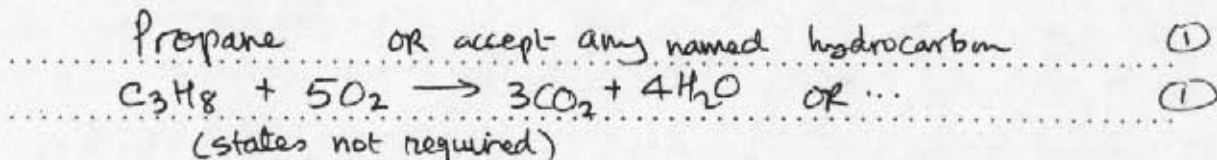 Propane OR accept any named hydrocarbon ①
C₃H₈ + 5O₂ → 3CO₂ + 4H₂O OR ... ①
(states not required)